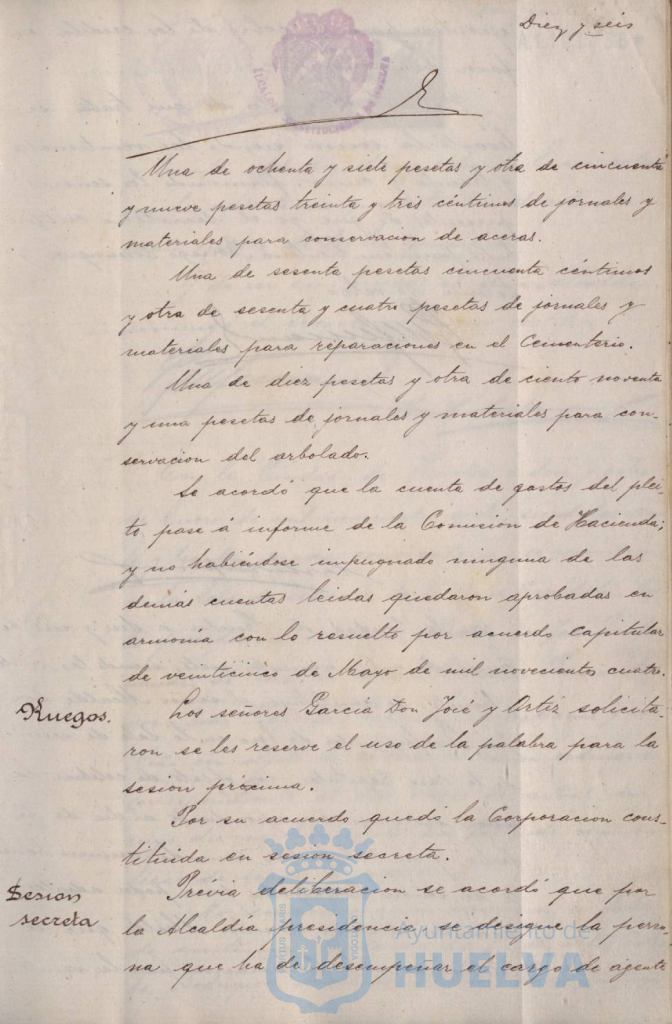 Diez y seis
Una de ochenta y siete pesetas y otra de cincuenta
y nueve pesetas treinta y tres céntimos de jornales y
materiales para conservacion de aceras.
Una de sesenta pesetas cincuenta céntimos
y otra de sesenta y cuatro pesetas de jornales y
materiales para reparaciones en el Cementerio.
Una de diez pesetas y otra de ciento noventa
y una pesetas de jornales y materiales para con-
servacion del arbolado.
Se acordó que la cuenta de gastos del plei-
to pase á informe de la Comision de Hacienda;
y no habiéndose impugnado ninguna de las
demás cuentas leidas quedaron aprobadas en
armonía con lo resuelto por acuerdo capitular
de veinticinco de Mayo de mil novecientos cuatro.
Ruegos.
Los señores García Don José y Ortiz solicita-
ron se les reserve el uso de la palabra para la
sesion próxima.
Por su acuerdo quedó la Corporacion cons-
tituida en sesion secreta.
Sesion
secreta
Prévia deliberacion se acordó que por
la Alcaldía presidencia se designe la perso-
na que ha de desempeñar el cargo de agente
Ayuntamiento de
HUELVA